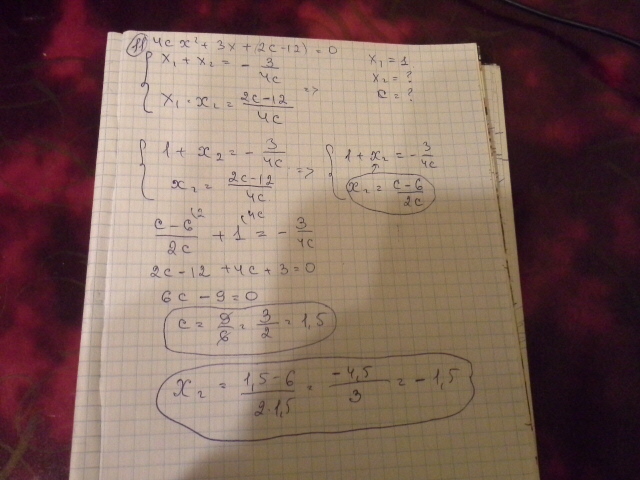 11 4cx² + 3x + (2c-12) = 0
x₁ + x₂ = - 3/4c
x₁ · x₂ = 2c-12/4c =>
x₁ = 1
x₂ = ?
c = ?
1 + x₂ = - 3/4c
x₂ = 2c-12/4c =>
1 + x₂ = - 3/4c
x₂ = c-6/2c
c-6/2c (2 + 1 (4c = - 3/4c
2c-12 + 4c + 3 = 0
6c - 9 = 0
c = 9/6 = 3/2 = 1,5
x₂ = 1,5-6/2·1,5 = -4,5/3 = -1,5